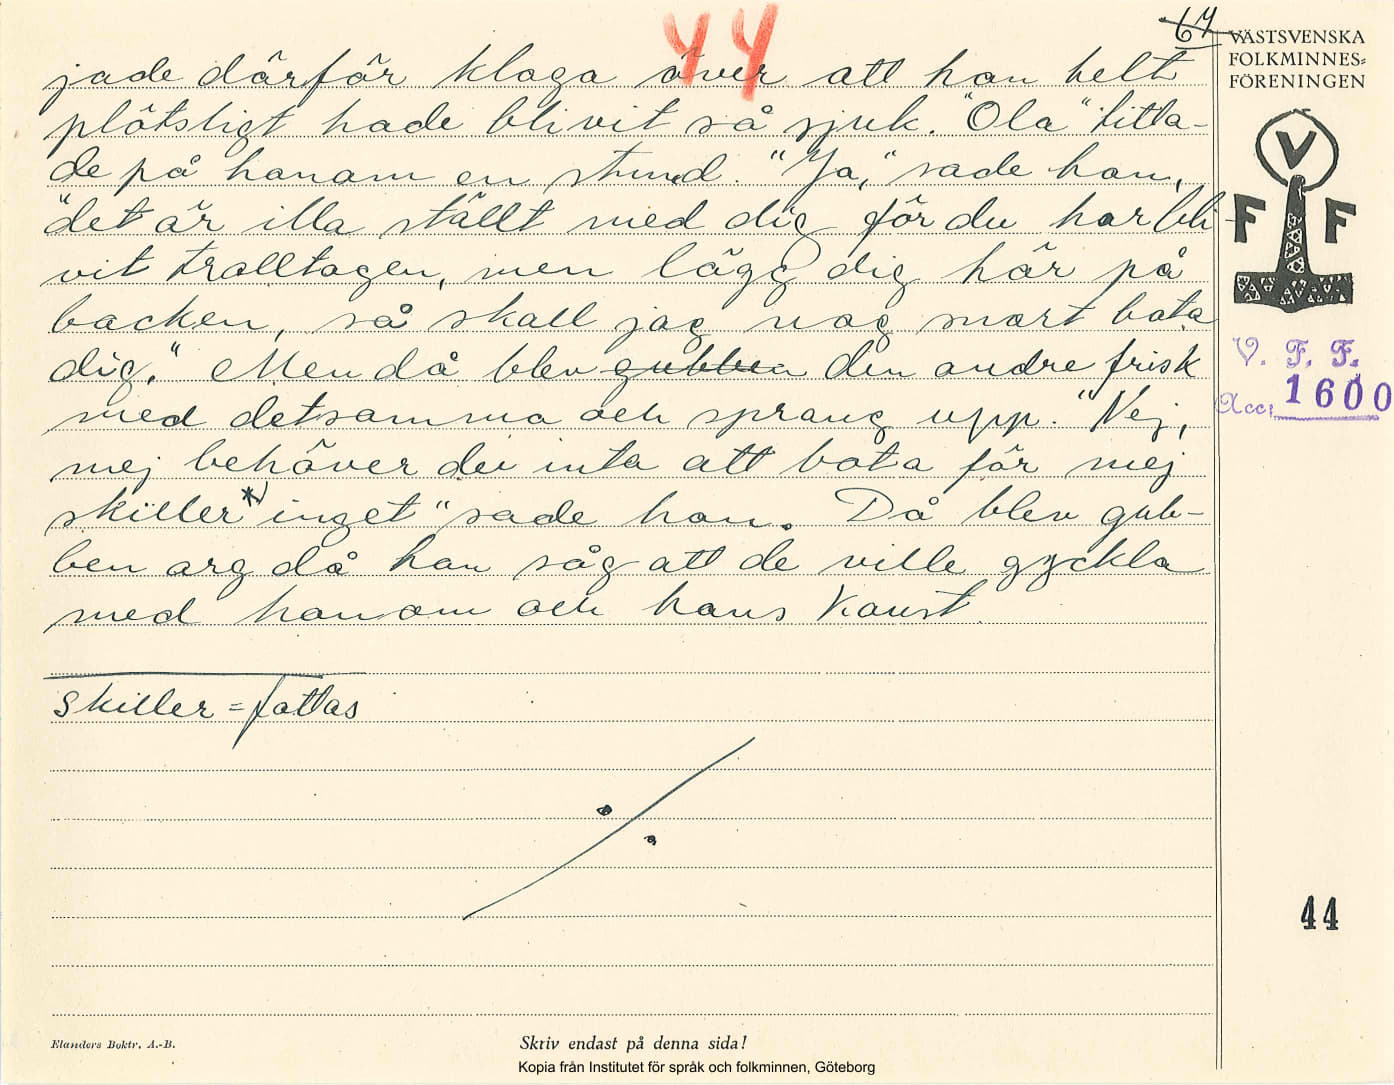 44
67
VÄSTSVENSKA
FOLKMINNES=
FÖRENINGEN
jade därför klaga över att han helt
plötsligt hade blivit så sjuk. "Ola" titta-
de på honom en stund. "Ja," sade han,
"det är illa ställt med dig för du har bli-
vit trolltagen, men lägg dig här på
backen, så skall jag nog snart bota
dig." Men då blev gubben den andre frisk
med detsamma och sprang upp. "Nej,
mej behöver du inta att bota för mej
skiller*) inget" sade han. Då blev gub-
ben arg då han såg att de ville gyckla
med honom och hans konst.
skiller = fattas
V
F F
V. F. F.
Acc: 1600
44
Elanders Boktr. A.-B.
Skriv endast på denna sida!
Kopia från Institutet för språk och folkminnen, Göteborg